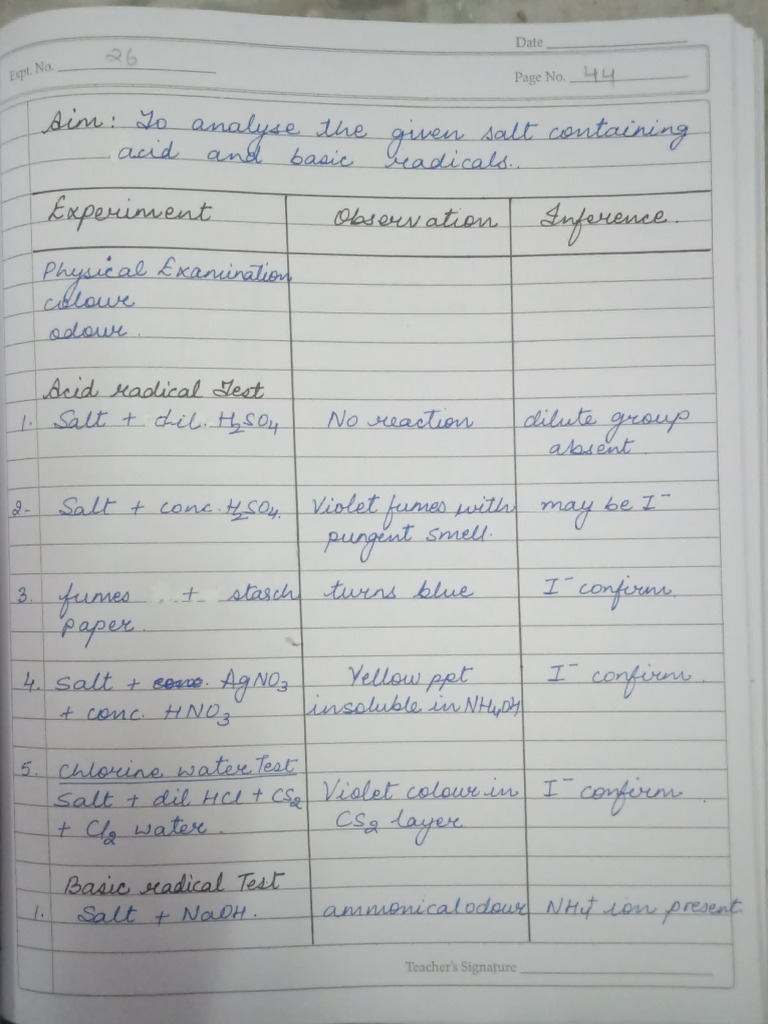 Date
Expt. No. 26
Page No. 44
Aim: To analyse the given salt containing
acid and basic radicals.
Experiment Observation Inference.
Physical Examination
colour
odour.
Acid radical Test
1. Salt + dil. H₂SO₄ No reaction dilute group
absent
2- Salt + conc. H₂SO₄. Violet fumes with may be I⁻
pungent smell.
3. fumes + starch turns blue I⁻ confirm.
paper.
4. Salt + conc. AgNO₃ Yellow ppt I⁻ confirm.
+ conc. HNO₃ insoluble in NH₄OH
5. Chlorine water Test
Salt + dil HCl + CS₂ Violet colour in I⁻ confirm
+ Cl₂ water. CS₂ layer
Basic radical Test
1. Salt + NaOH. ammonical odour NH₄⁺ ion present
Teacher's Signature